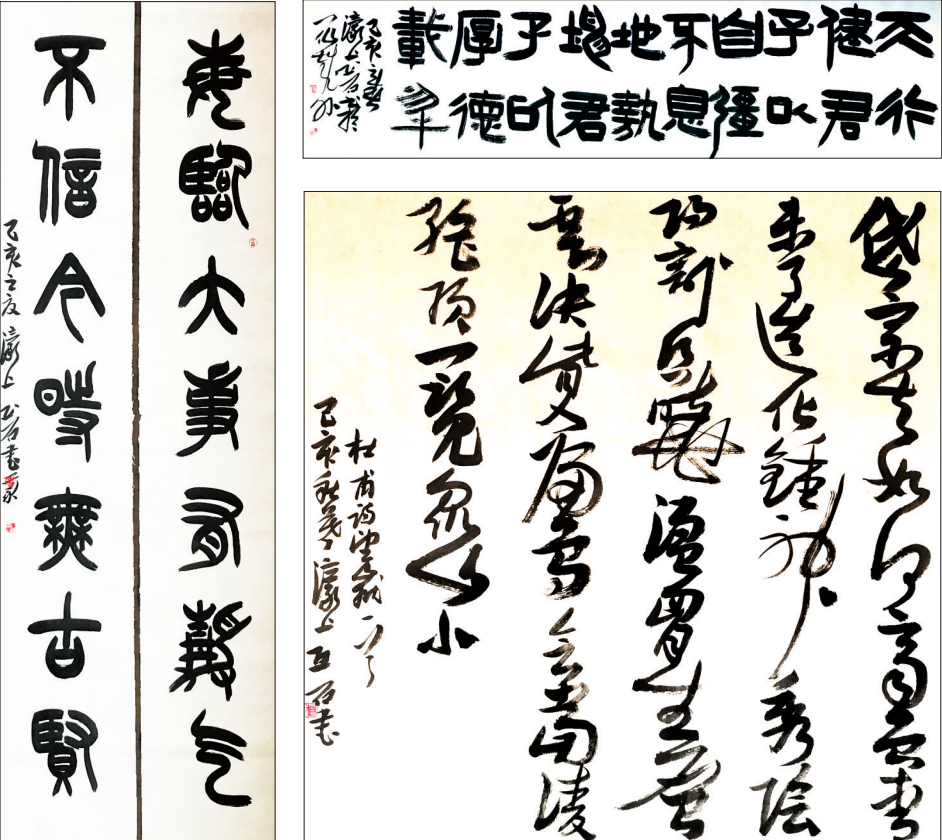 每臨大事有靜气
不信今時無古賢
己亥之夏瀛上五石書
天行
健君
子以
自彊
不息
地埶
坤君
子以
厚德
載物
岱宗夫如何齊魯青
未了造化鍾神秀陰
陽割昏曉盪胸生層
雲決眥入歸鳥會當凌
絕頂一覽眾山小
杜甫詩望嶽一首
己亥秋暮瀛上五石書